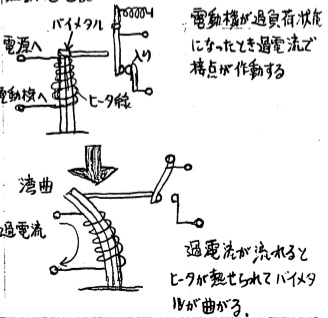 バイメタル
電源へ
入り
電動機へ
ヒータ線
電動機が過負荷状態
になったとき過電流で
接点が作動する
湾曲
過電流
過電流が流れると
ヒータが熱せられてバイメタ
ルが曲がる。